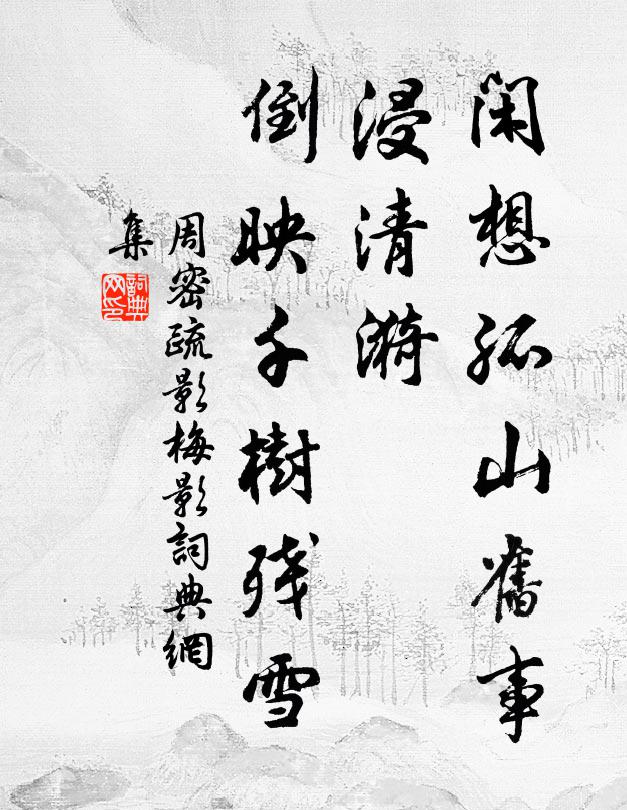 闲想孤山舊事
浸清漪
倒映千樹残雪
周密疏影梅影詞典網
集
詞典
网印